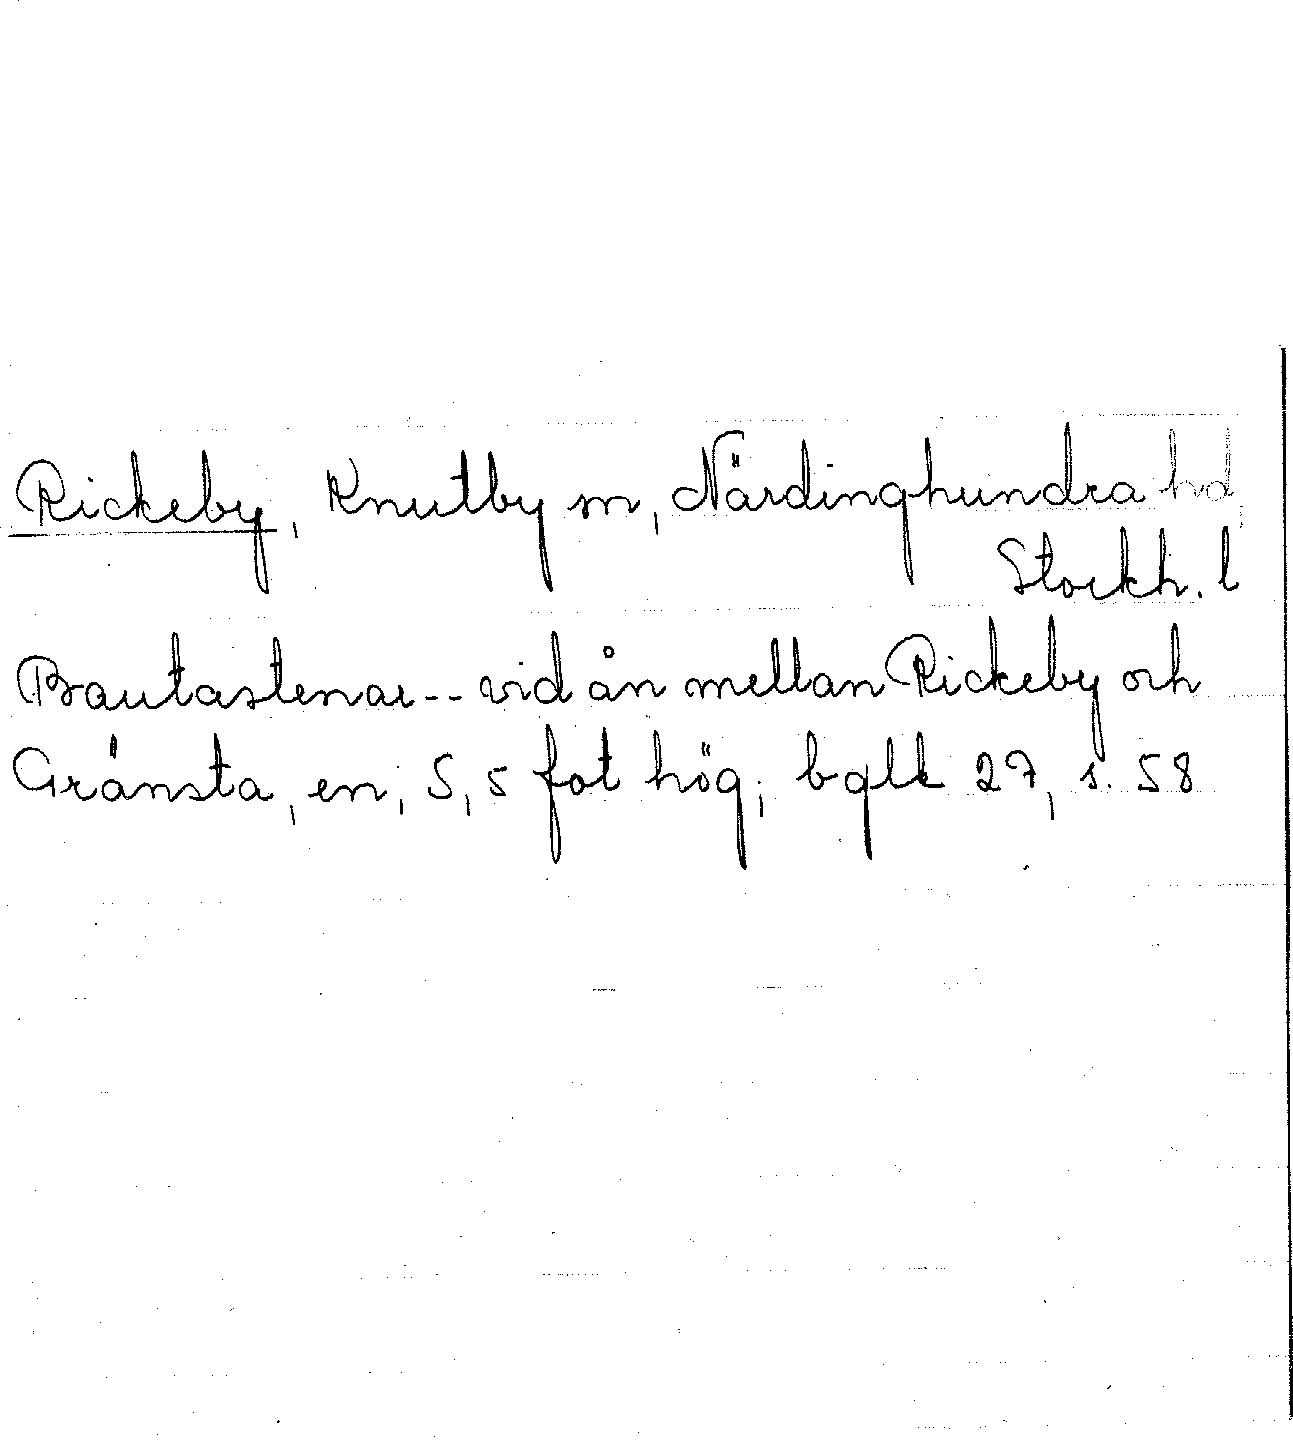 Rickeby, Knutby sn, Närdinghundra hd
Stockh. l
Bautastenar-- vid ån mellan Rickeby och
Gränsta, en, 5,5 fot hög; bglk 27, s. 58